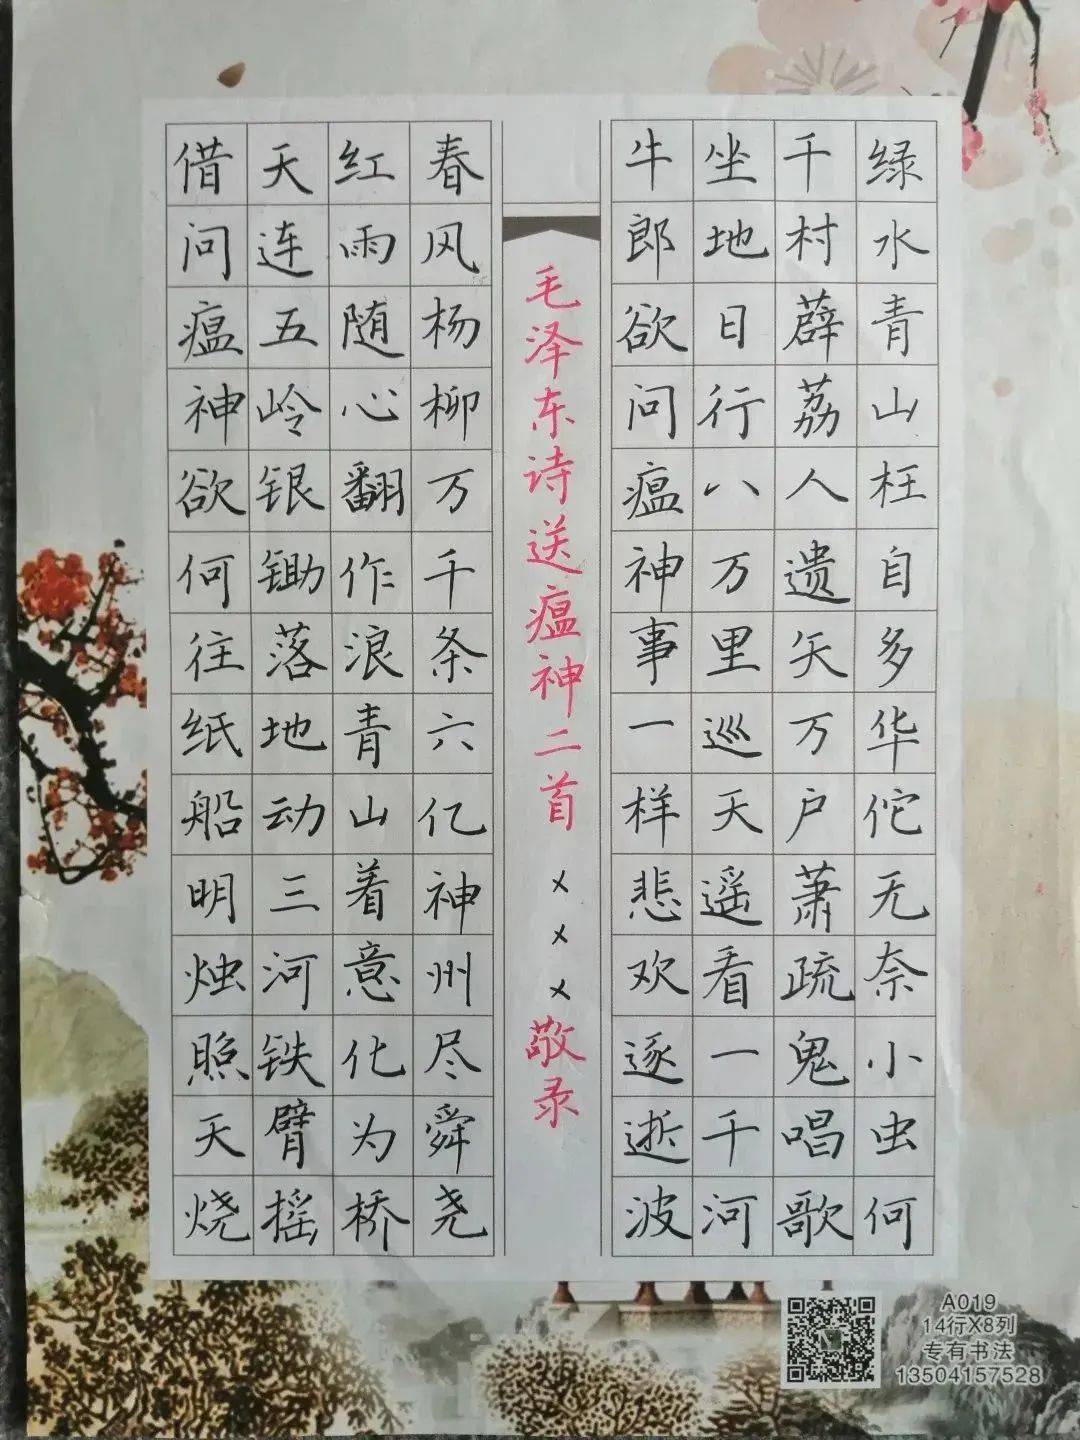 绿水青山枉自多华佗无奈小虫何
千村薜荔人遗矢万户萧疏鬼唱歌
坐地日行八万里巡天遥看一千河
牛郎欲问瘟神事一样悲欢逐逝波
毛泽东诗送瘟神二首×××敬录
春风杨柳万千条六亿神州尽舜尧
红雨随心翻作浪青山着意化为桥
天连五岭银锄落地动三河铁臂摇
借问瘟神欲何往纸船明烛照天烧
A019
14行X8列
专有书法
13504157528